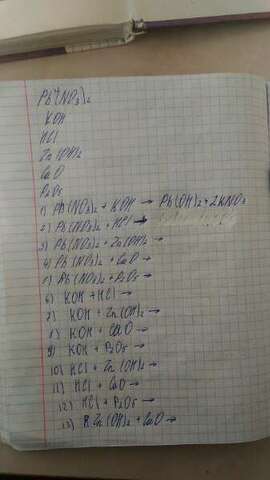 Pb(NO3)2
KOH
HCl
Zn(OH)2
CaO
P2O5
1) Pb(NO3)2 + KOH → Pb(OH)2 + 2KNO3
2) Pb(NO3)2 + HCl →
3) Pb(NO3)2 + Zn(OH)2 →
4) Pb(NO3)2 + CaO →
5) Pb(NO3)2 + P2O5 →
6) KOH + HCl →
7) KOH + Zn(OH)2 →
8) KOH + CaO →
9) KOH + P2O5 →
10) HCl + Zn(OH)2 →
11) HCl + CaO →
12) HCl + P2O5 →
13) Zn(OH)2 + CaO →